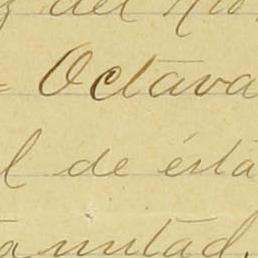 del Río
Octava
l de ésta
mitad,